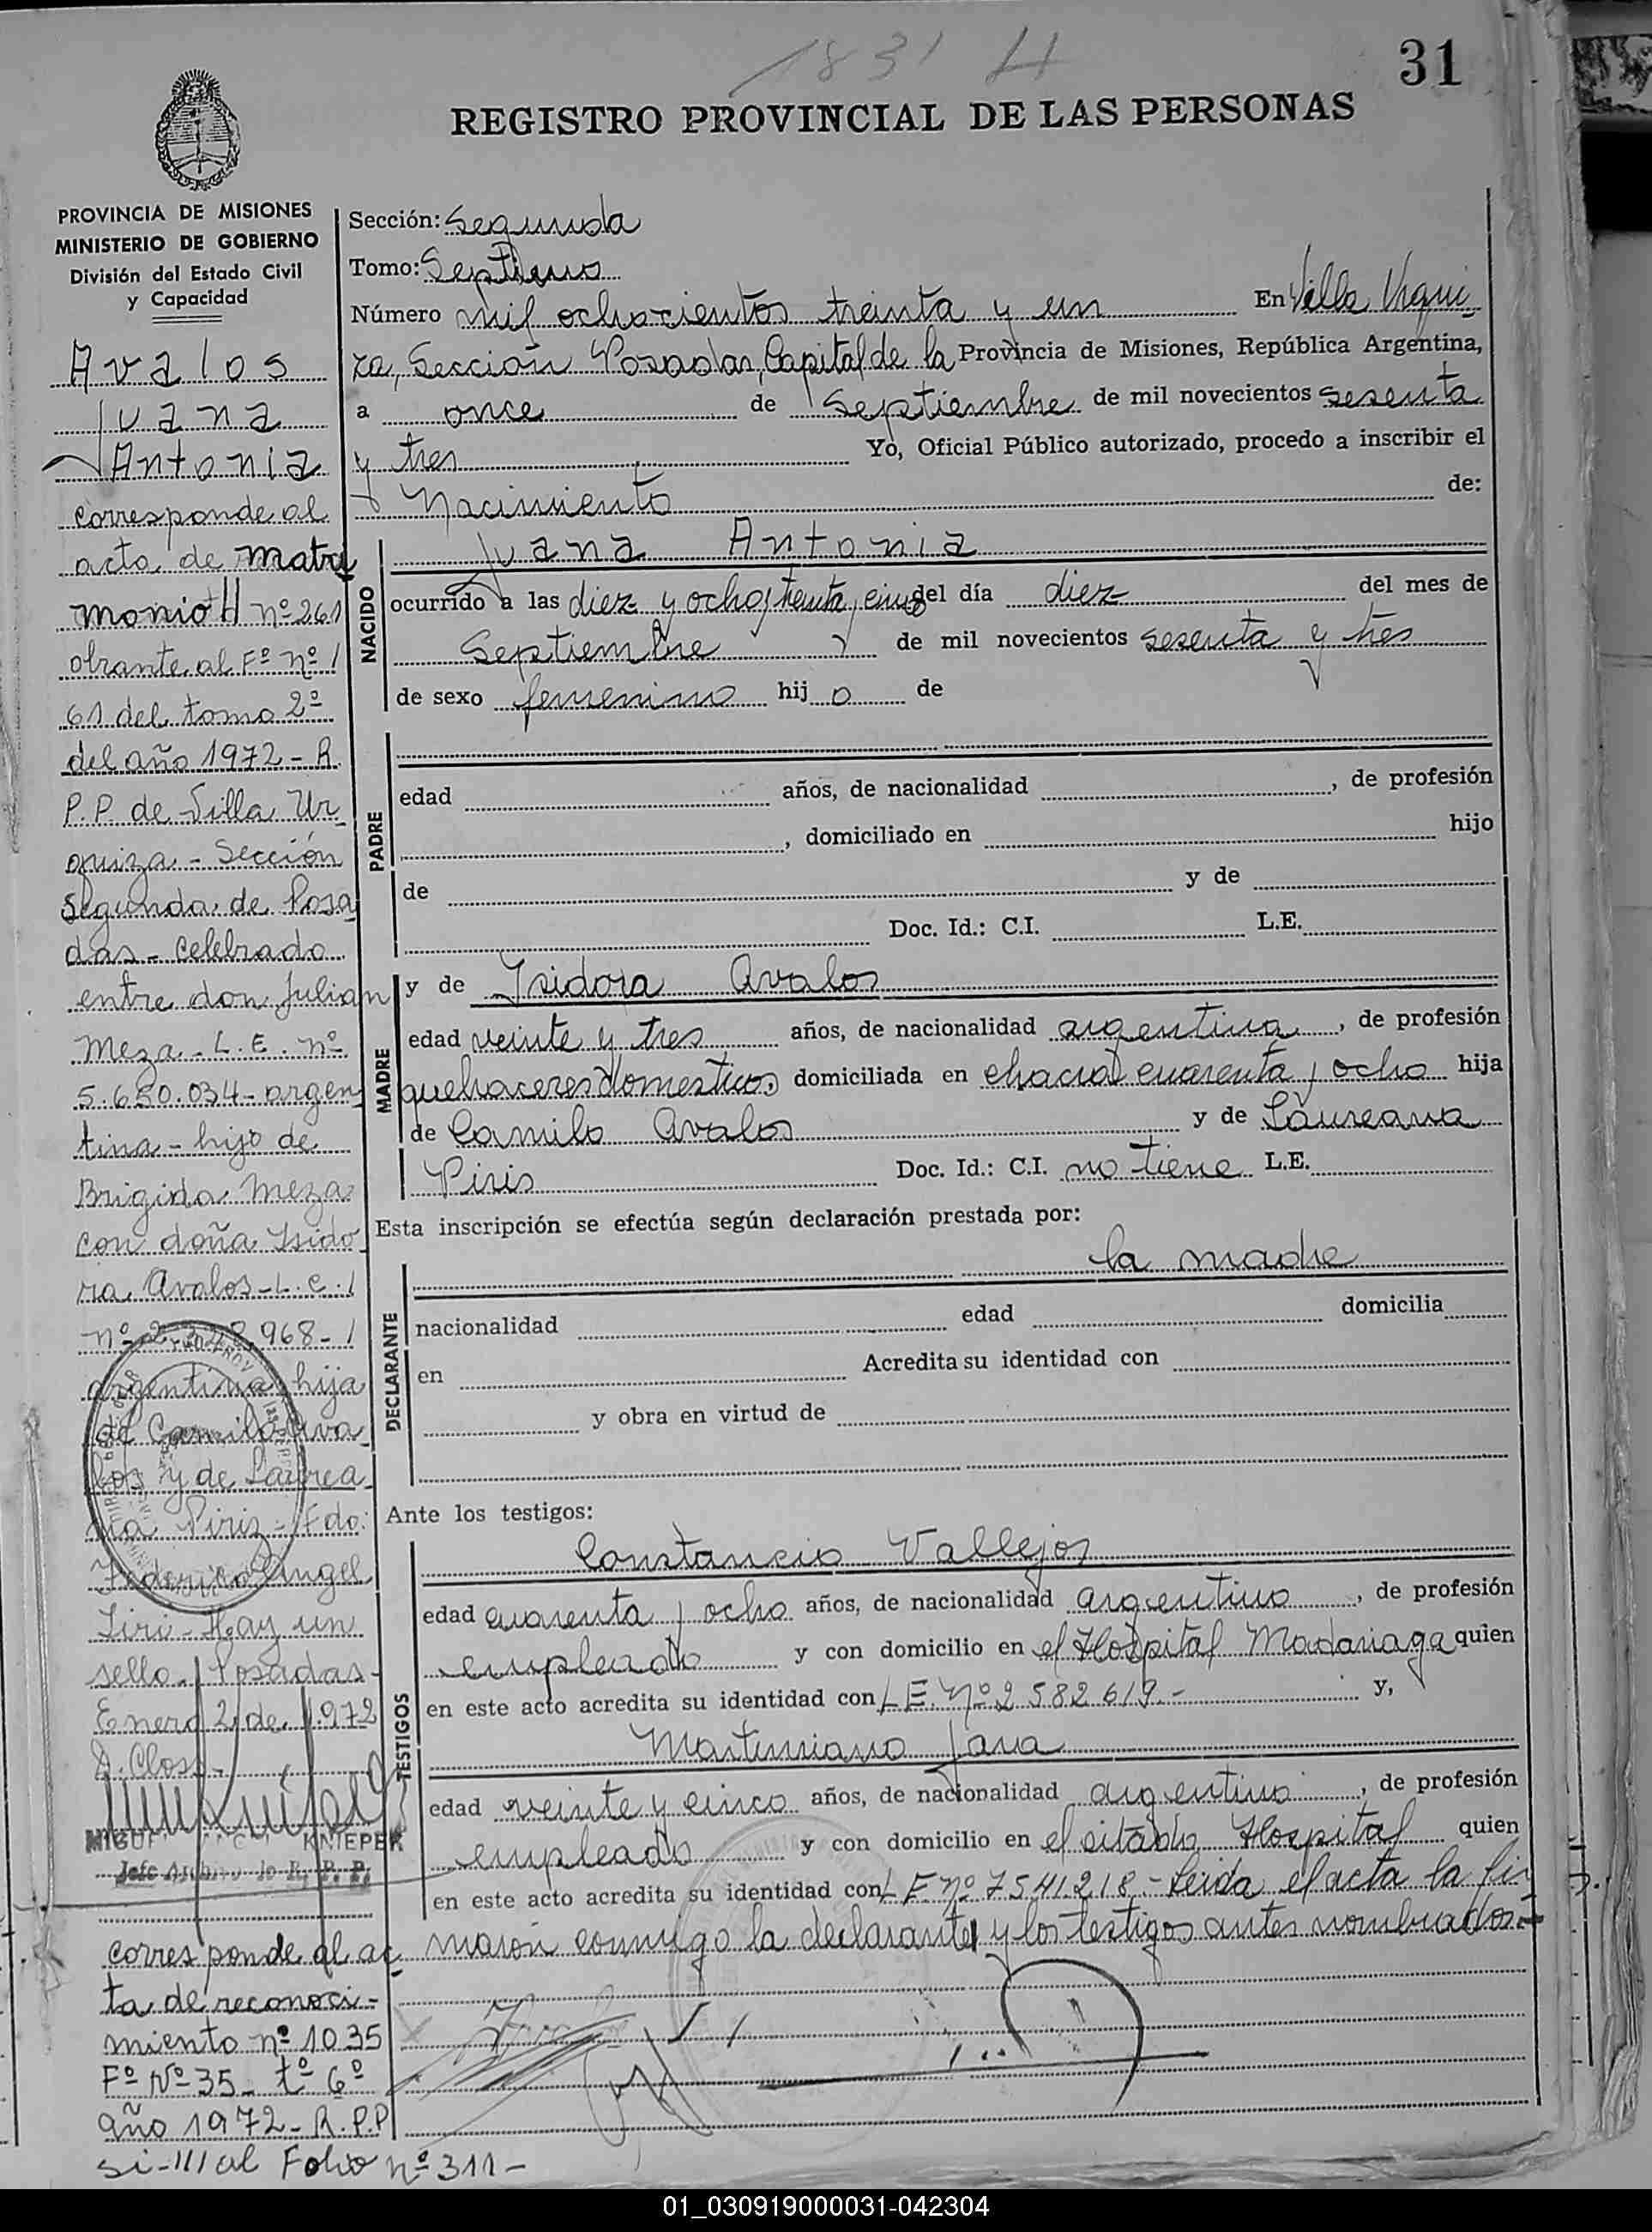 1831 H
31
REGISTRO PROVINCIAL DE LAS PERSONAS
PROVINCIA DE MISIONES
MINISTERIO DE GOBIERNO
División del Estado Civil
y Capacidad
Avalos
Juana
Antonia
corresponde al
acta de matri
monio H nº 261
obrante al Fº nº /
61 del tomo 2º
del año 1972 - R.
P.P. de Villa Ur
quiza - Sección
Segunda de Posa
das - celebrado
entre don Julian
Meza - L.E. nº
5.650.034 - argen
tina - hijo de
Brigida Meza
con doña Isido
ra Avalos - L.C. /
nº 968 - /
argentina hija
de Camilo Ava
los y de Laurea
na Piriz - Fdo:
Federico Angel
Hay un
sello. Posadas -
Enero 2 de 1972
MIGUEL KNIEPER
Jefe Archivo de R. P. P.
corresponde al ac
ta de reconoci-
miento nº 1035
Fº Nº 35 - tº 6º
año 1972 - R.P.P
si-/// al Folio nº 311 -
Sección: Segunda
Tomo: Septimo
Número mil ochocientos treinta y un En Villa Urqui
za, Sección Posadas, Capital de la Provincia de Misiones, República Argentina,
a once de Septiembre de mil novecientos sesenta
y tres Yo, Oficial Público autorizado, procedo a inscribir el
Nacimiento de:
NACIDO
Juana Antonia
ocurrido a las diez y ocho y treinta y cinco del día diez del mes de
Septiembre de mil novecientos sesenta y tres
de sexo femenino hij o de
PADRE
edad años, de nacionalidad , de profesión
, domiciliado en hijo
de y de
Doc. Id.: C.I. L.E.
MADRE
y de Isidora Avalos
edad veinte y tres años, de nacionalidad argentina , de profesión
quehaceres domesticos domiciliada en chacra cuarenta y ocho hija
de Camilo Avalos y de Laureana
Piris Doc. Id.: C.I. no tiene L.E.
Esta inscripción se efectúa según declaración prestada por:
DECLARANTE
la madre
nacionalidad edad domicilia
en Acredita su identidad con
y obra en virtud de
Ante los testigos:
TESTIGOS
Constancio Vallejos
edad cuarenta y ocho años, de nacionalidad argentino , de profesión
empleado y con domicilio en el Hospital Madariaga quien
en este acto acredita su identidad con L E. Nº 2 582 619.- y,
Martiniano Jara
edad veinte y cinco años, de nacionalidad argentino , de profesión
empleado y con domicilio en el citado Hospital quien
en este acto acredita su identidad con L E nº 7541218.- Leida el acta la fir
maron conmigo la declarante y los testigos antes nombrados.-
01_030919000031-042304